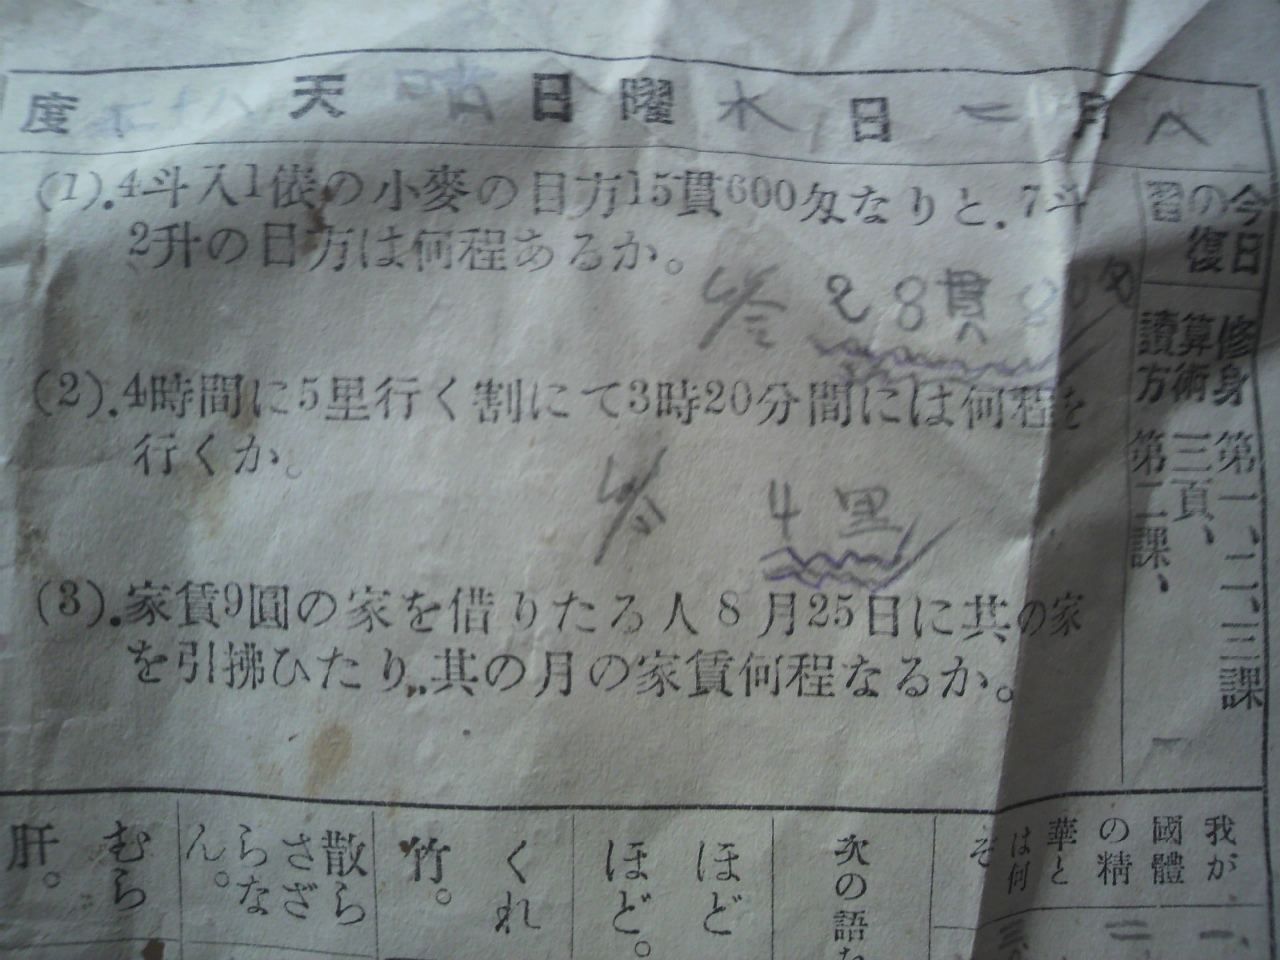 八月二日水曜日晴天 度
今日の復習
修身 第一、二、三課
算術 三頁、
讀方 第二課、
(1).4斗入1俵の小麥の目方15貫600匁なりと.7斗
2升の目方は何程あるか。
答 28貫80匁
(2).4時間に5里行く割にて3時20分間には何程を
行くか。
答 4里
(3).家賃9圓の家を借りたる人8月25日に其の家
を引拂ひたり,,其の月の家賃何程なるか。
我が
國體
の精
華と
は何
ぞ
一、
二
三
次の語た
ほど
ほど。
くれ
竹。
散ら
さざ
らな
ん。
むら
肝。